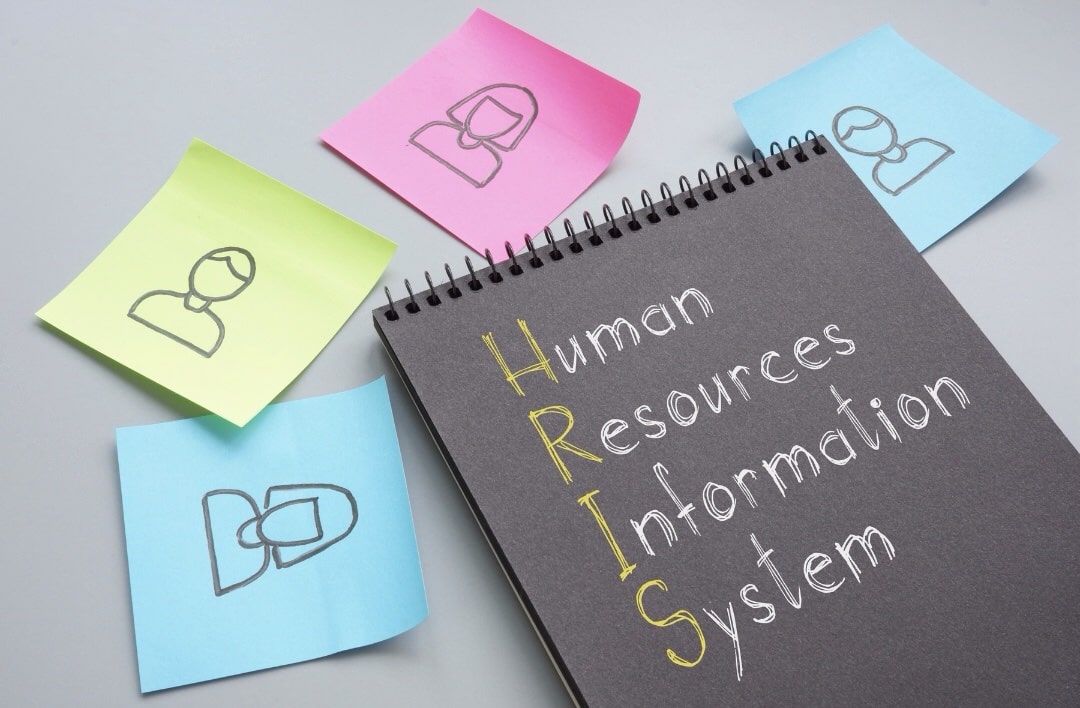 Human
Resources
Information
System